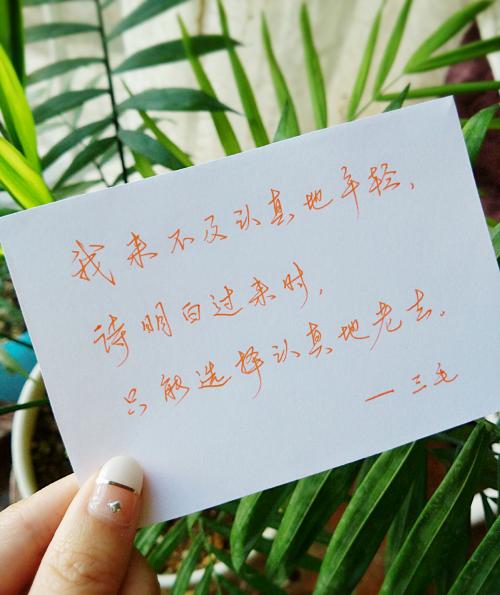 我来不及认真地年轻，
待明白过来时，
只能选择认真地老去。
— 三毛